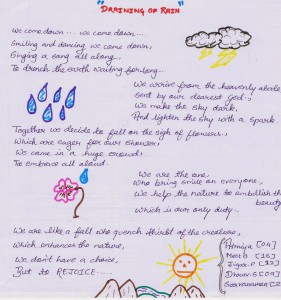 "DRAINING OF RAIN"
We come down..... we come down.....
Smiling and dancing we come down,
Singing a song all along,
To drench the earth waiting for long....
We arrive from the heavenly abode,
Sent by our dearest God!
We make the sky dark,
And lighten the sky with a spark.
Together we decide to fall on the sigh of flowers,
Which are eager for our showers!
We come in a huge crowd!
To embrace all aloud.
We are the one
Who bring smile on everyone,
We help the nature to embellish the beauty
Which is our only duty.
We are like a fall who quench thirst of the creature,
Which enhances the nature,
We don't have a choice,
But to REJOICE.....
Atmiya [04]
Meet B [16]
Dhruv S [09]